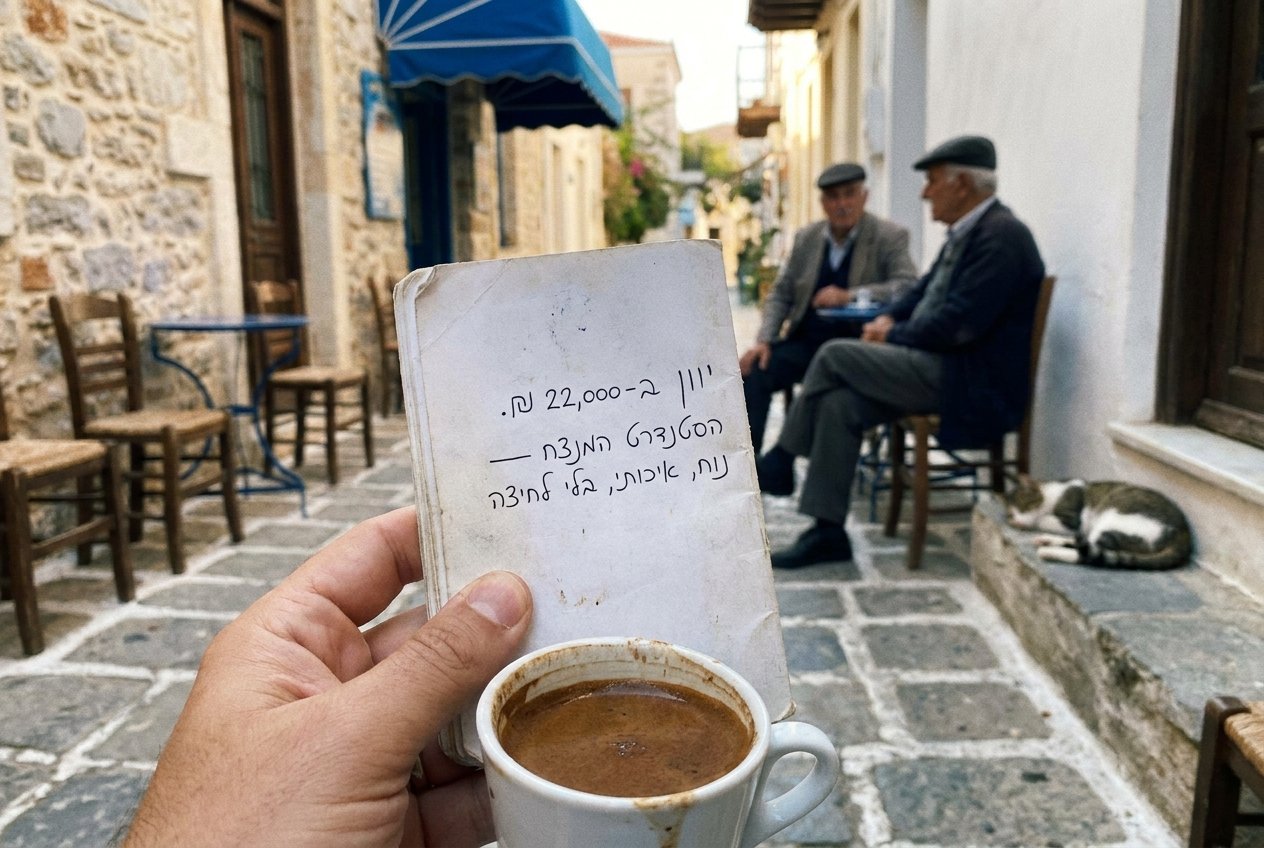 יוון ב-22,000 ₪.
הסטנדרט המנצח —
נוח, איכותי, בלי לחיצה